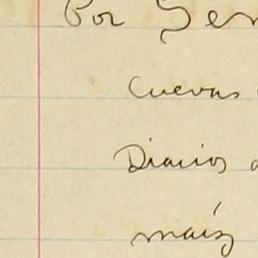 Por Ser
Cuevas
Diarios
maíz